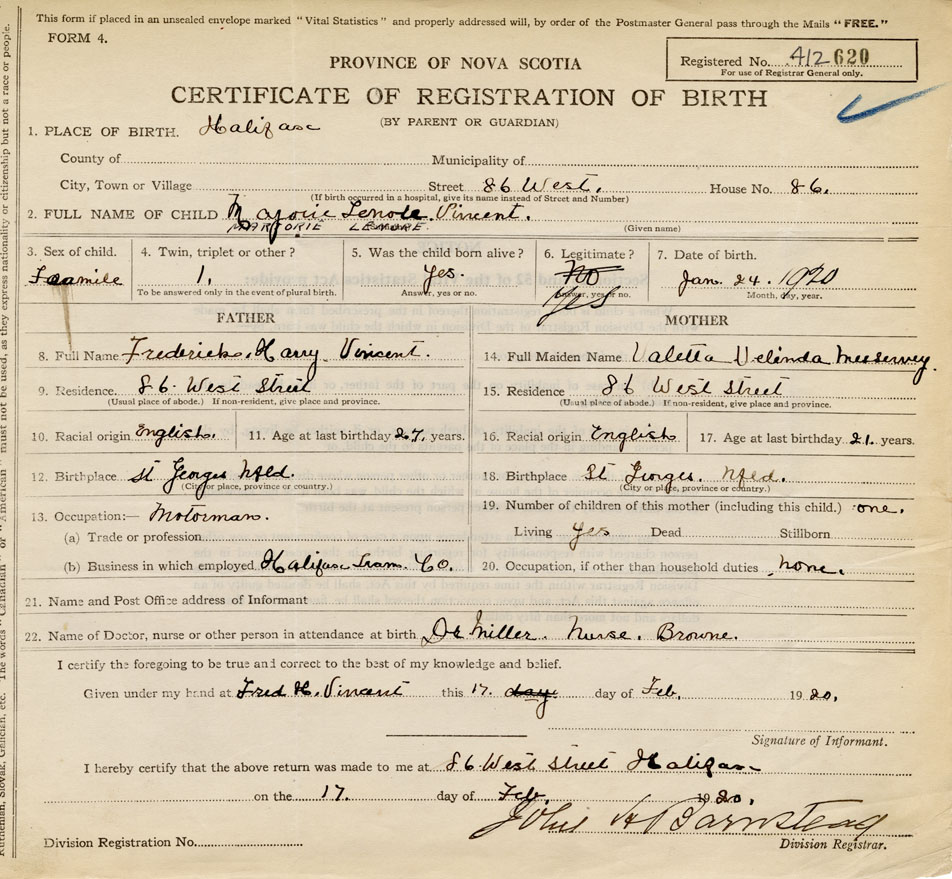 This form if placed in an unsealed envelope marked "Vital Statistics" and properly addressed will, by order of the Postmaster General pass through the Mails "FREE."
FORM 4.
Registered No. 412 620
For use of Registrar General only.
PROVINCE OF NOVA SCOTIA
CERTIFICATE OF REGISTRATION OF BIRTH
(BY PARENT OR GUARDIAN)
1. PLACE OF BIRTH. Halifax
County of Municipality of
City, Town or Village Street 86 West. House No. 86.
(If birth occurred in a hospital, give its name instead of Street and Number)
2. FULL NAME OF CHILD Marjorie Lenore Vincent.
MARJORIE LENORE (Given name)
3. Sex of child. 4. Twin, triplet or other? 5. Was the child born alive? 6. Legitimate? 7. Date of birth.
Feamile 1. Yes. No Jan. 24. 1920
To be answered only in the event of plural birth. Answer, yes or no. Answer, yes or no. Month, day, year.
Yes
FATHER MOTHER
8. Full Name Frederick. Harry. Vincent. 14. Full Maiden Name Valetta Velinda Messervey.
9. Residence 86. West Street 15. Residence 86 West street
(Usual place of abode.) If non-resident, give place and province. (Usual place of abode.) If non-resident, give place and province.
10. Racial origin English. 11. Age at last birthday 27. years. 16. Racial origin English 17. Age at last birthday 21. years.
12. Birthplace St Georges Nfld. 18. Birthplace St Giorges. Nfld.
(City or place, province or country.) (City or place, province or country.)
13. Occupation:— Motorman. 19. Number of children of this mother (including this child.) one.
(a) Trade or profession Living Yes Dead Stillborn
(b) Business in which employed Halifax Tram. Co. 20. Occupation, if other than household duties none.
21. Name and Post Office address of Informant
22. Name of Doctor, nurse or other person in attendance at birth Dr Miller. Nurse. Browne.
I certify the foregoing to be true and correct to the best of my knowledge and belief.
Given under my hand at Fred H. Vincent this 17. day day of Feb. 1920.
Signature of Informant.
I hereby certify that the above return was made to me at 86 West street Halifax
on the 17. day of Feb. 1920.
John H Barnstead
Division Registration No. Division Registrar.
Ruthenian, Slovak, Galician, etc. The words "Canadian" or "American" must not be used, as they express nationality or citizenship but not a race or people.